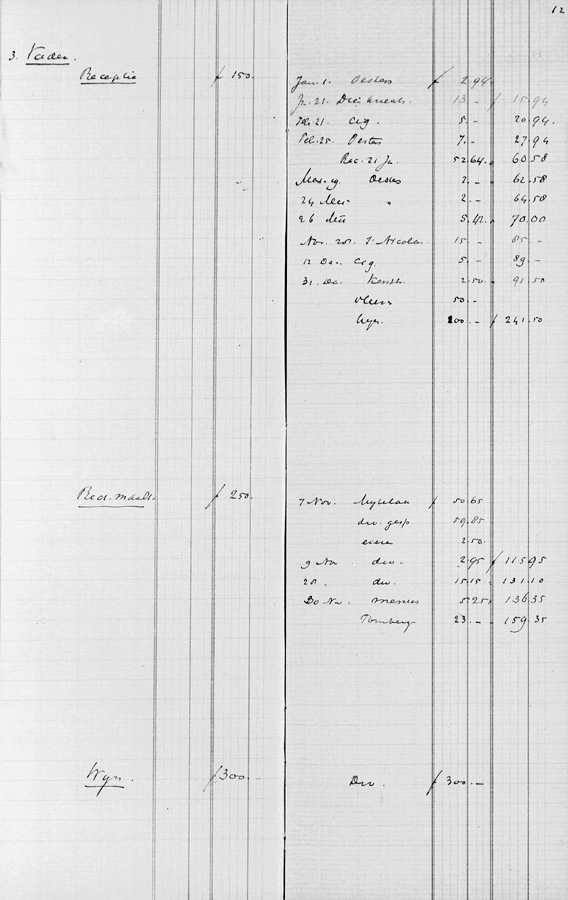 12
3. Vader.
Receptie f 150.
Jan. 1. Oesters f 2.94.
Ja. 21. 13 - f 15.94
Feb. 21. Cig. 5 - 20.94.
Feb. 25. Oesters 7. - 27.94
Rec. 21 Ja. 52.64. 60.58
Mar. 19. Oesters 2. - 62.58
24 " 2 - 64.58
26 5.42. 70.00
Nov. 20. St Nicolaas 15 - 85 -
12 Dec. Cig. 5 - 89 -
31 Dec. 2.50. 91.50
50. -
Wyn. 100. - f 241.50
Red. maalt. f 250.
7 Nov. f 50.65
div. gesp. 59.85.
eieren 2.50.
9 Nov. div. 2.95 f 115.95
20 " div. 15.15 131.10
30 Nov. menus 5.25 136.35
23. - - 159.35
Wyn. f 300. -
Div. f 300. -